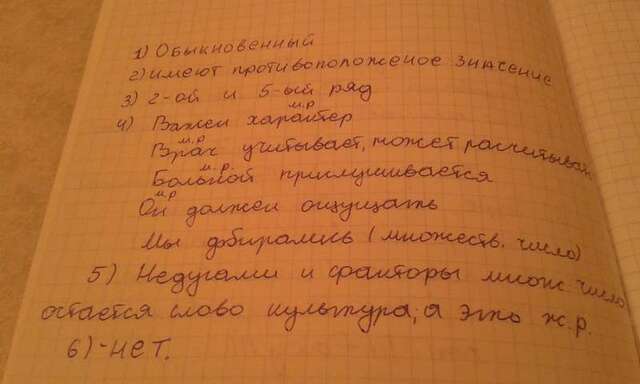 1) Обыкновенный
2) имеют противоположеное значение
3) 2-ой и 5-ый ряд
м.р
4) Важен характер
м.р
Врач учитывает, может расчитывать
м.р.
Больной прислушивается
м.р
Он должен ощущать
Мы добирались (множеств. число)
5) Недугами и факторы множ. число
остается слово культура, а это ж.р.
6) -нет.